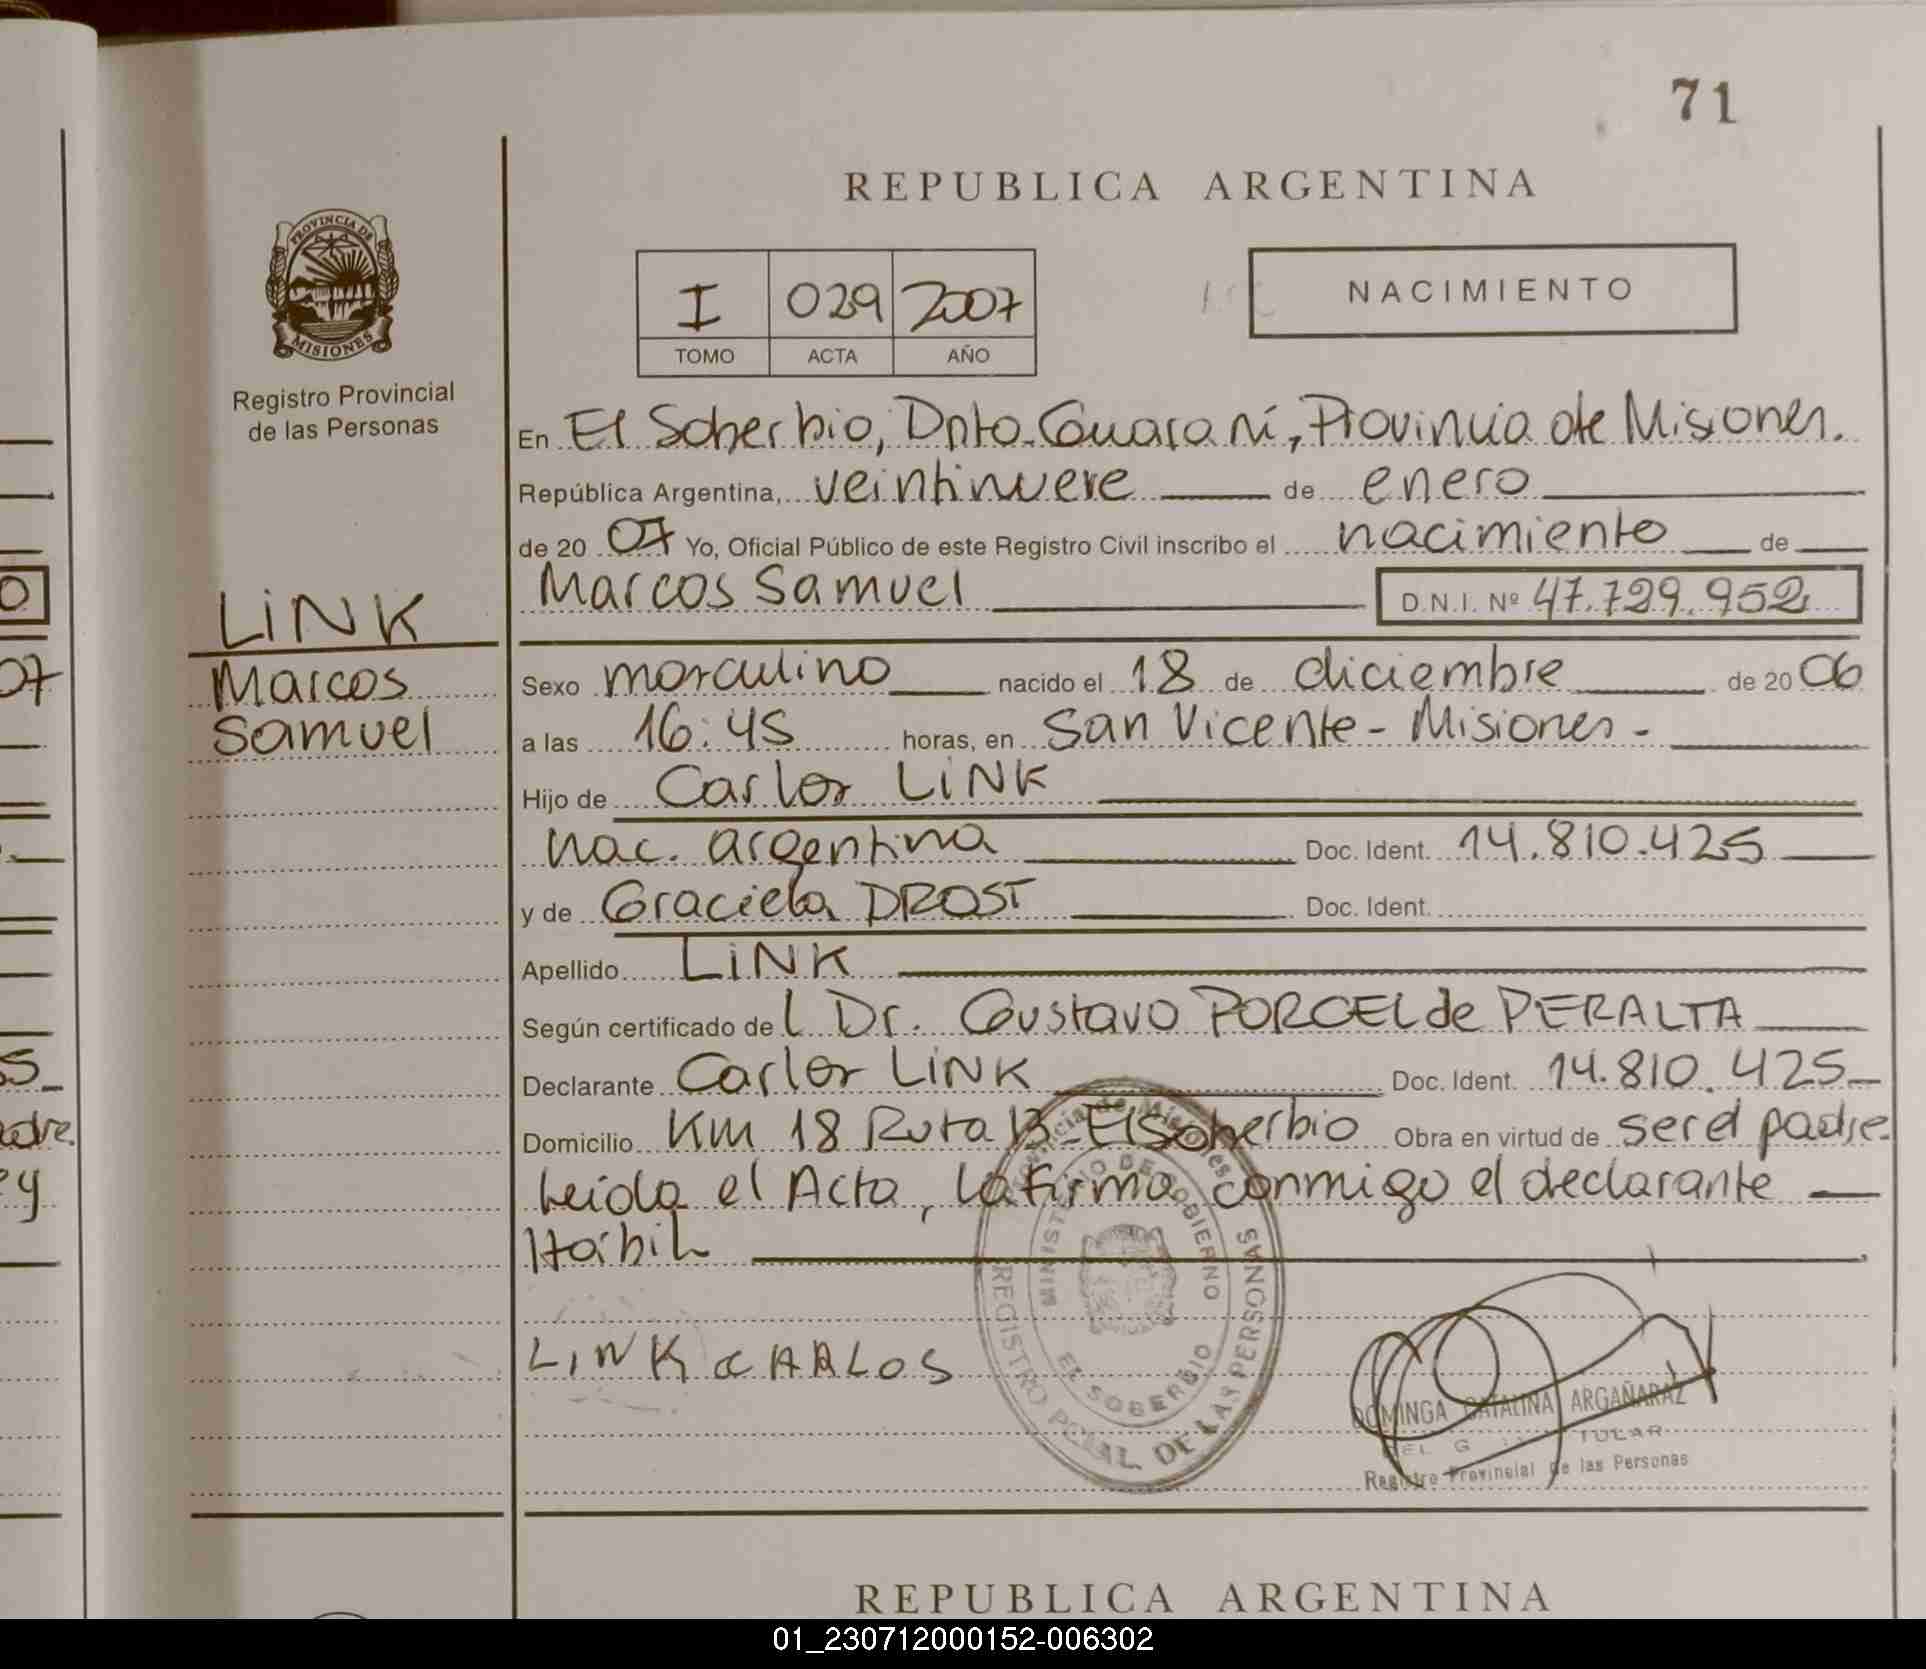 71
REPUBLICA ARGENTINA
PROVINCIA DE
MISIONES
Registro Provincial
de las Personas
I 029 2007
TOMO ACTA AÑO
NACIMIENTO
En El Soberbio, Dpto. Guaraní, Provincia de Misiones.
República Argentina, veintinueve de enero
de 20 07 Yo, Oficial Público de este Registro Civil inscribo el nacimiento de
Marcos Samuel D.N.I. Nº 47.729.952
LINK
Marcos
Samuel
Sexo masculino nacido el 18 de diciembre de 20 06
a las 16:45 horas, en San Vicente - Misiones -
Hijo de Carlos LINK
nac. argentina Doc. Ident. 14.810.425
y de Graciela DROST Doc. Ident.
Apellido LINK
Según certificado de l Dr. Gustavo PORCEL de PERALTA
Declarante Carlos LINK Doc. Ident. 14.810.425
Domicilio Km 18 Ruta 13 - El Soberbio Obra en virtud de ser el padre.
Leída el Acta, la firma conmigo el declarante
Hábil
LINK CARLOS
Provincia de Misiones
MINISTERIO DE GOBIERNO
EL SOBERBIO
REGISTRO PCIAL. DE LAS PERSONAS
DOMINGA CATALINA ARGAÑARAZ
TULAR
Registro Provincial de las Personas
REPUBLICA ARGENTINA
07
padre.
y
01_230712000152-006302